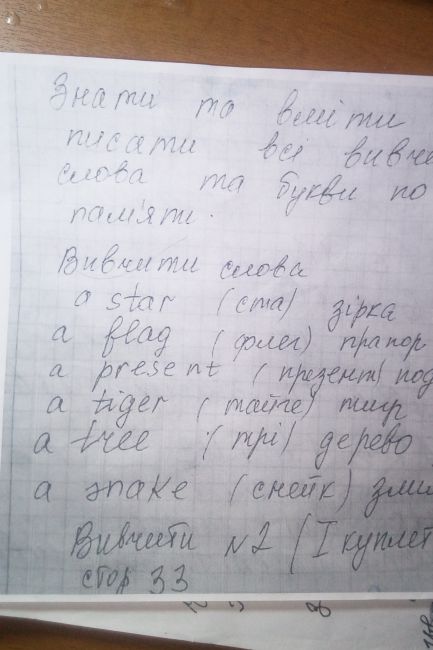 Знати та вміти
писати всі вивче
слова та букви по
пам'яті.
Вивчити слова
a star (ста) зірка
a flag (флег) прапор
a present (презент) под
a tiger (тайге) тигр
a tree (трі) дерево
a snake (снейк) змі
Вивчити №2 (I куплет
стор 33